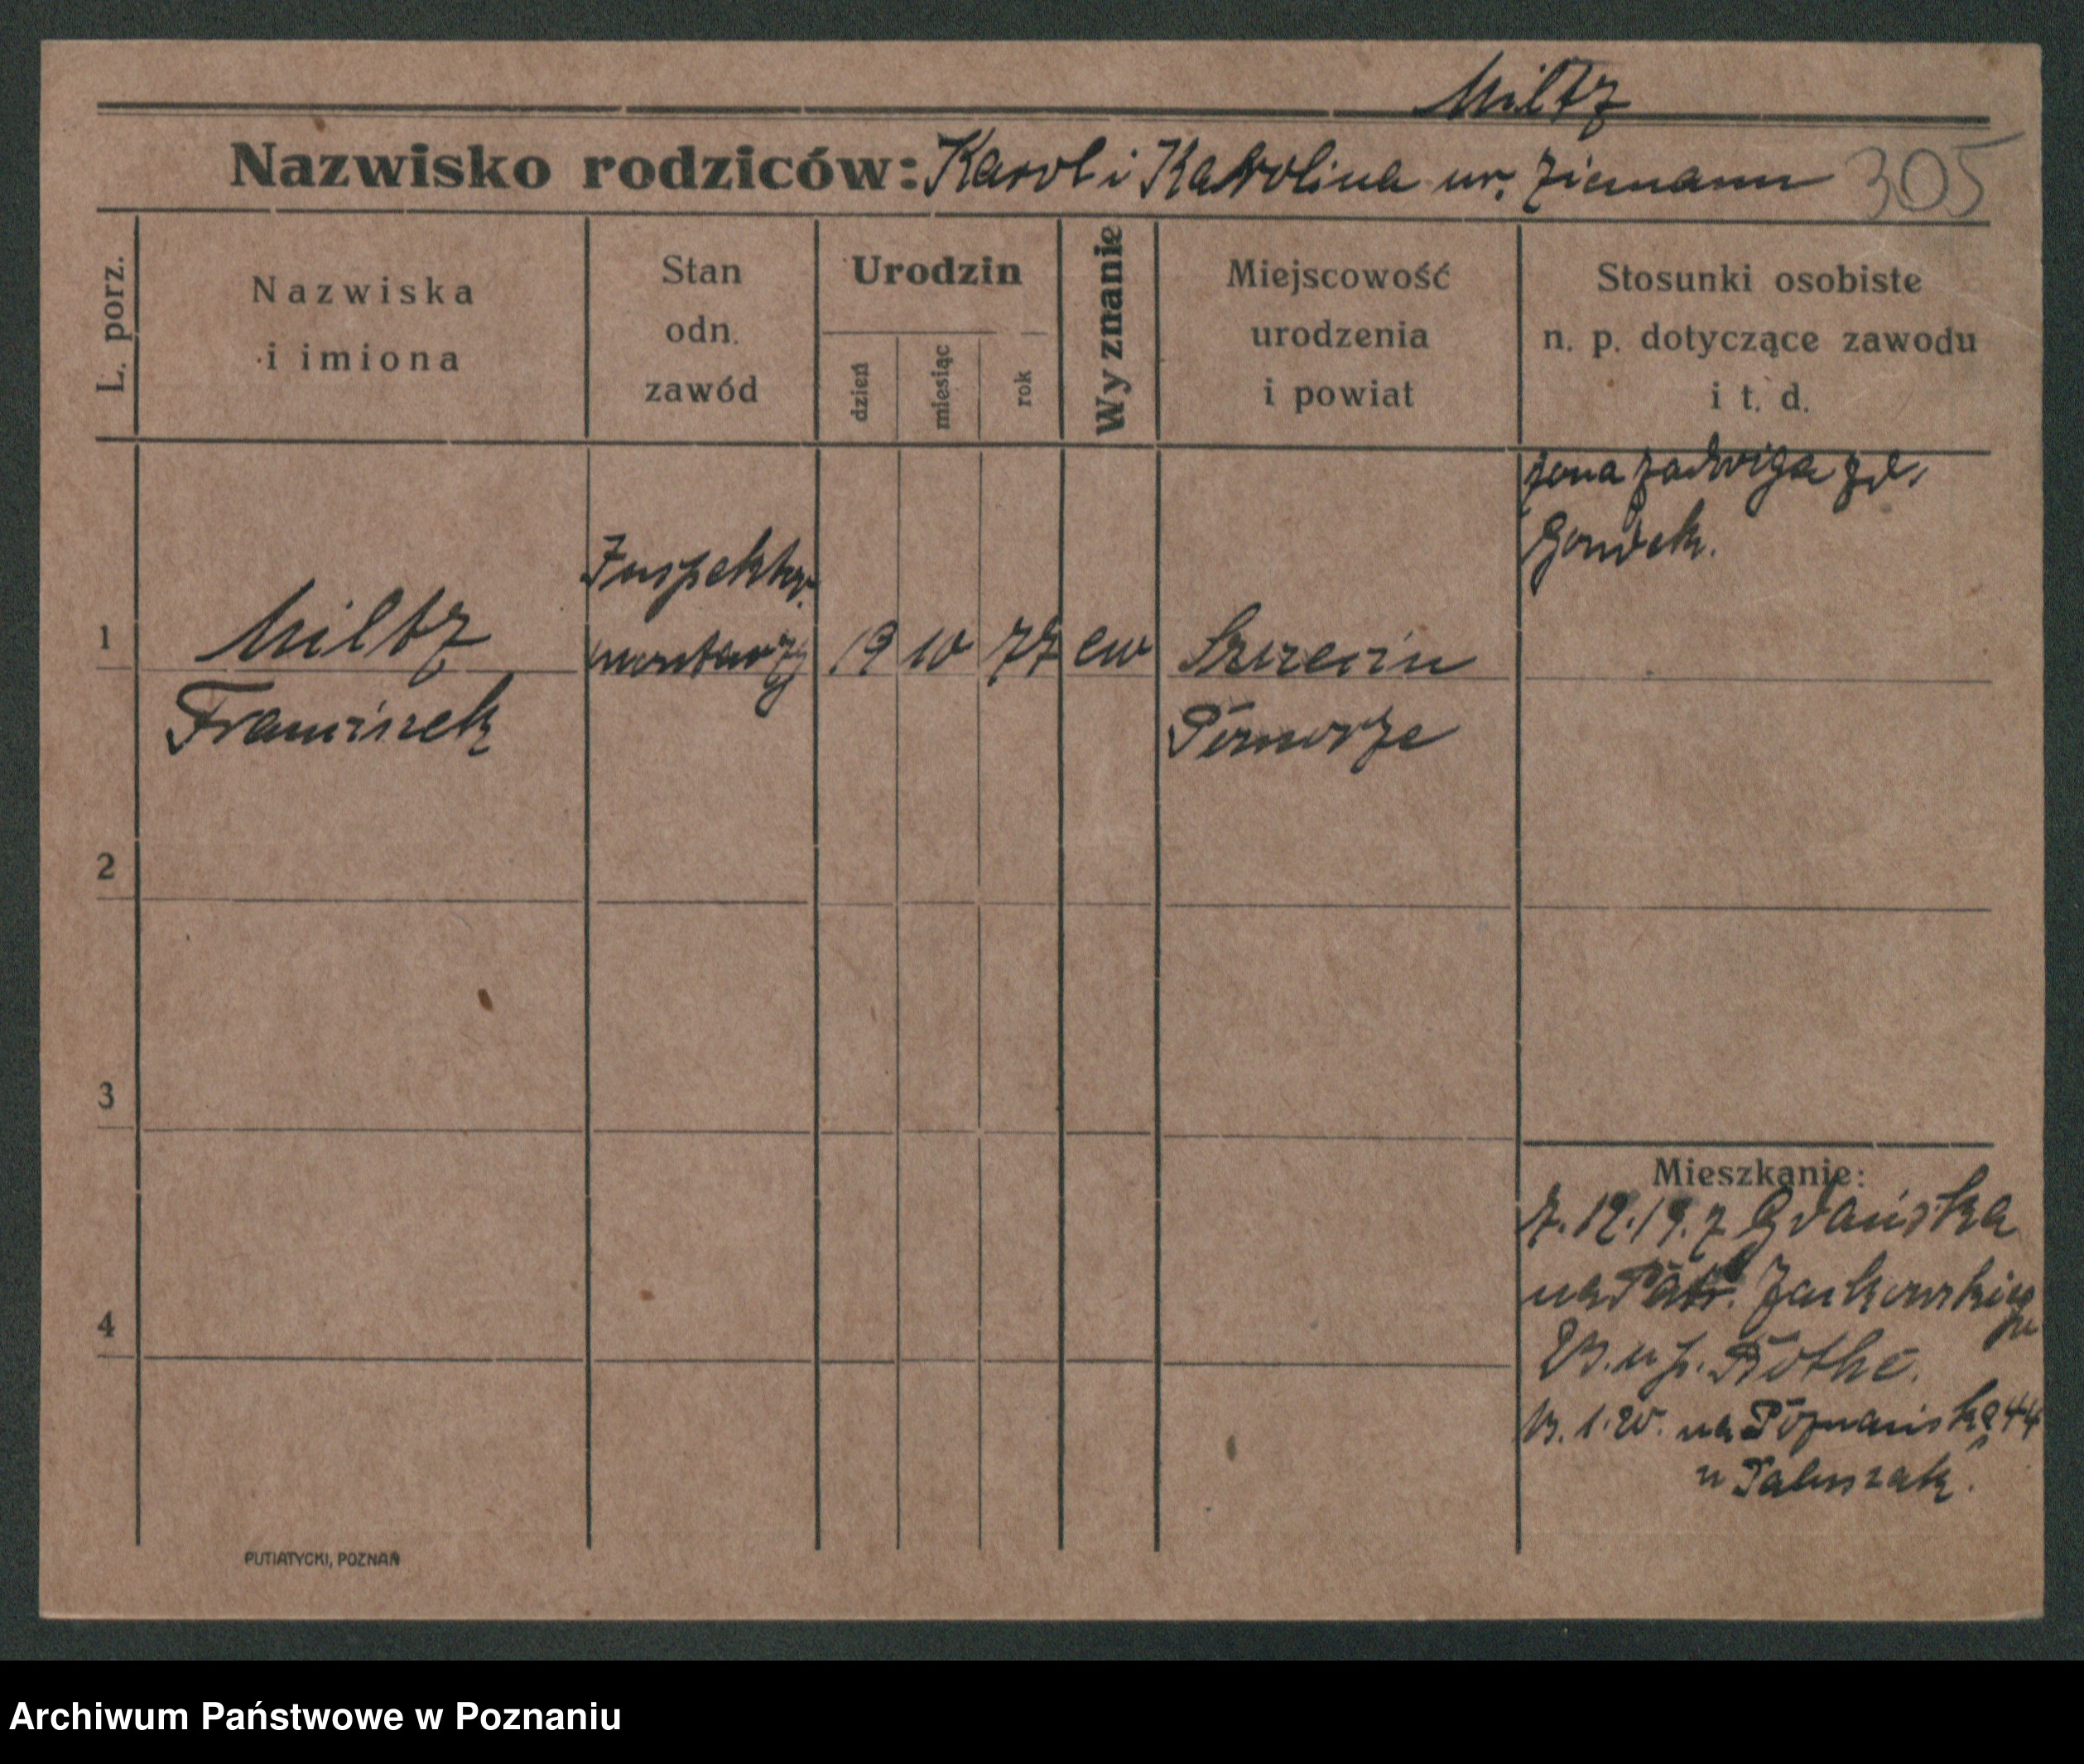 Miltz
Nazwisko rodziców: Karol i Karolina ur. Ziemann 305
L. porz.
Nazwiska
i imiona
Stan
odn.
zawód
Urodzin
dzień
miesiąc
rok
Wyznanie
Miejscowość
urodzenia
i powiat
Stosunki osobiste
n. p. dotyczące zawodu
i t. d.
żona Jadwiga
Inspektor
1 Miltz 19 10 77 ew Szczecin
Franciszek Pomorze
2
3
4
Mieszkanie:
7.12.19. z Gdańska
na Jackowskiego
u p. Rothe.
13.1.20. na Poznańską 44
u
PUTIATYCKI, POZNAŃ
Archiwum Państwowe w Poznaniu